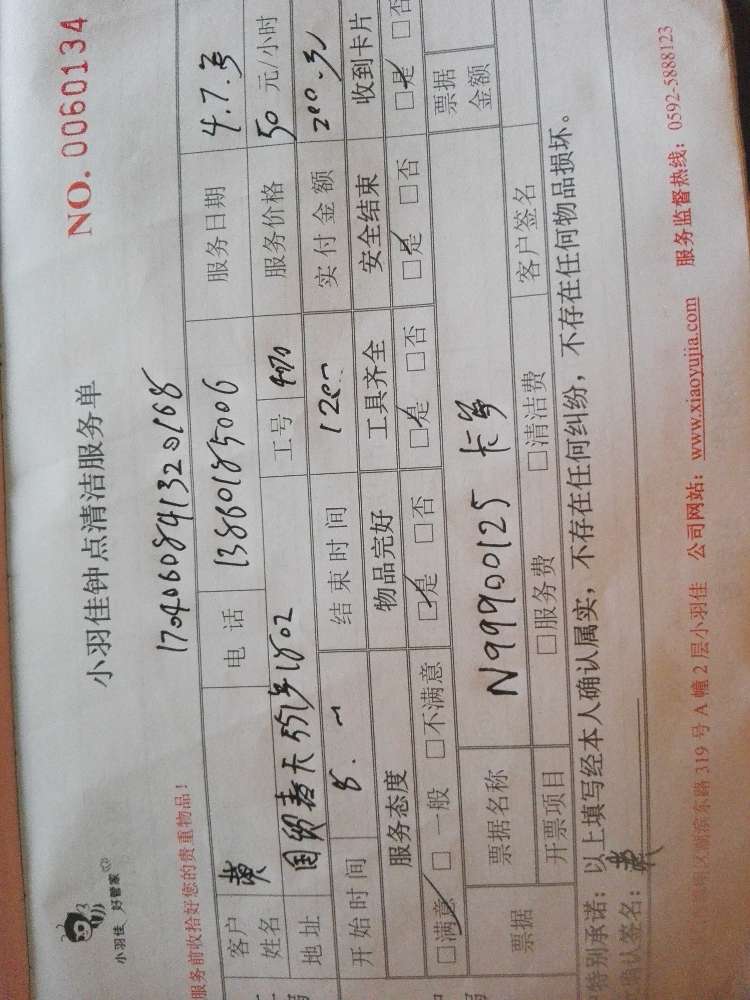 小羽佳 好管家
小羽佳钟点清洁服务单
NO. 0060134
服务前收拾好您的贵重物品！
客户姓名 黄 电话 13860185006 服务日期 4.7.
地址 551号1802 工号 服务价格 50元/小时
开始时间 8. 结束时间 120 实付金额 200.
服务态度 物品完好 工具齐全 安全结束 收到卡片
□满意 □一般 □不满意 □是 □否 □是 □否 □是 □否 □是 □否
票据 票据名称 N99900125 卡号 票据金额
开票项目 □服务费 □清洁费 客户签名
特别承诺：以上填写经本人确认属实，不存在任何纠纷，不存在任何物品损坏。
确认签名：黄
湖滨东路319号A幢2层小羽佳 公司网站：www.xiaoyujia.com 服务监督热线：0592-5888123